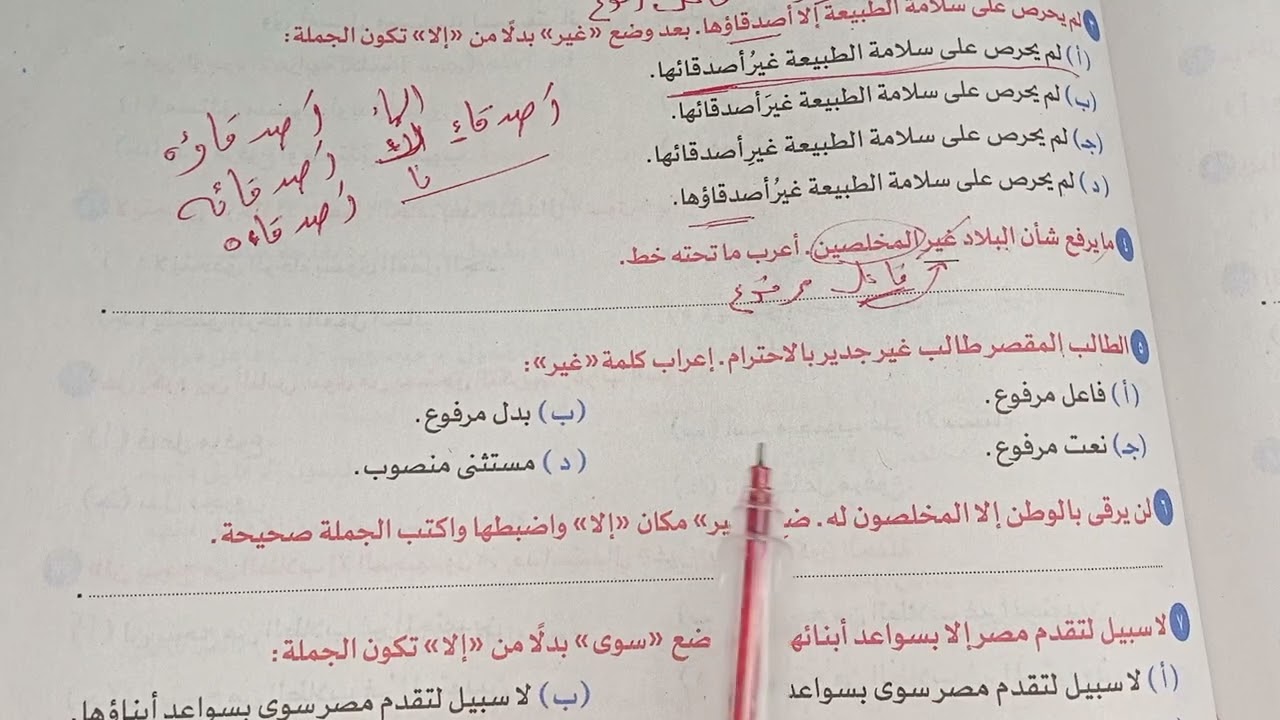 لم يحرص على سلامة الطبيعة إلا أصدقاؤها. بعد وضع «غير» بدلًا من «إلا» تكون الجملة:
(أ) لم يحرص على سلامة الطبيعة غيرُ أصدقائها.
(ب) لم يحرص على سلامة الطبيعة غيرَ أصدقائها.
(جـ) لم يحرص على سلامة الطبيعة غيرِ أصدقائها.
(د) لم يحرص على سلامة الطبيعة غيرُ أصدقاؤها.
أصدقاء الهاء أصدقاؤه
نا أصدقائه
أصدقاءه
٤ ما يرفع شأن البلاد غير المخلصين. أعرب ما تحته خط.
فاعل مرفوع
٥ الطالب المقصر طالب غير جدير بالاحترام. إعراب كلمة «غير»:
(أ) فاعل مرفوع. (ب) بدل مرفوع.
(جـ) نعت مرفوع. (د) مستثنى منصوب.
٦ لن يرقى بالوطن إلا المخلصون له. ير» مكان «إلا» واضبطها واكتب الجملة صحيحة.
٧ لا سبيل لتقدم مصر إلا بسواعد أبنائه ضع «سوى» بدلًا من «إلا» تكون الجملة:
(أ) لا سبيل لتقدم مصر سوى بسواعد (ب) لا سبيل لتقدم مصر سوى بسواعد أبناؤها.